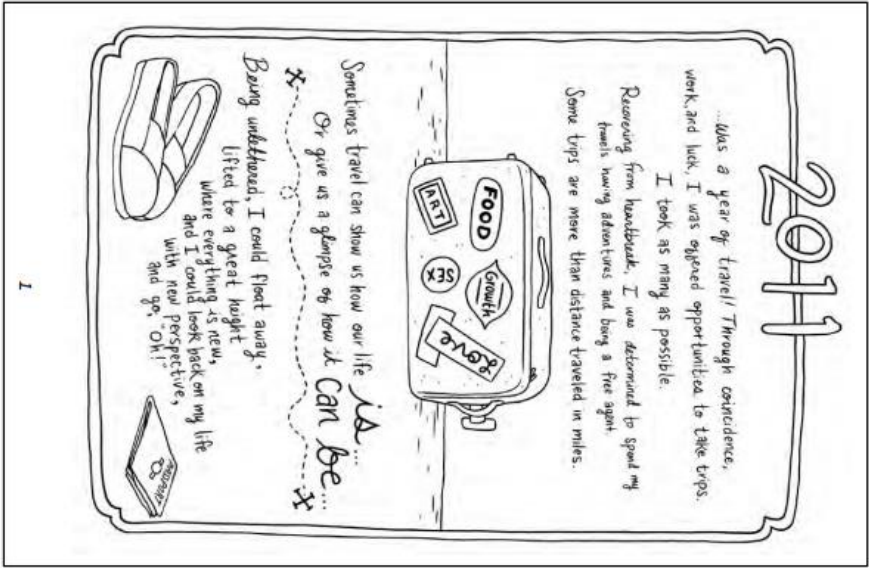 2011
...Was a year of travel! Through coincidence,
work, and luck, I was offered opportunities to take trips.
I took as many as possible.
Recovering from heartbreak, I was determined to spend my
travels having adventures and being a free agent.
Some trips are more than distance traveled in miles.
FOOD
Growth
Love
ART
SEX
Sometimes travel can show us how our life is...
Or give us a glimpse of how it can be...
Being untethered, I could float away,
lifted to a great height
where everything is new,
and I could look back on my life
with new perspective,
and go, "Oh!"
PASSPORT
1